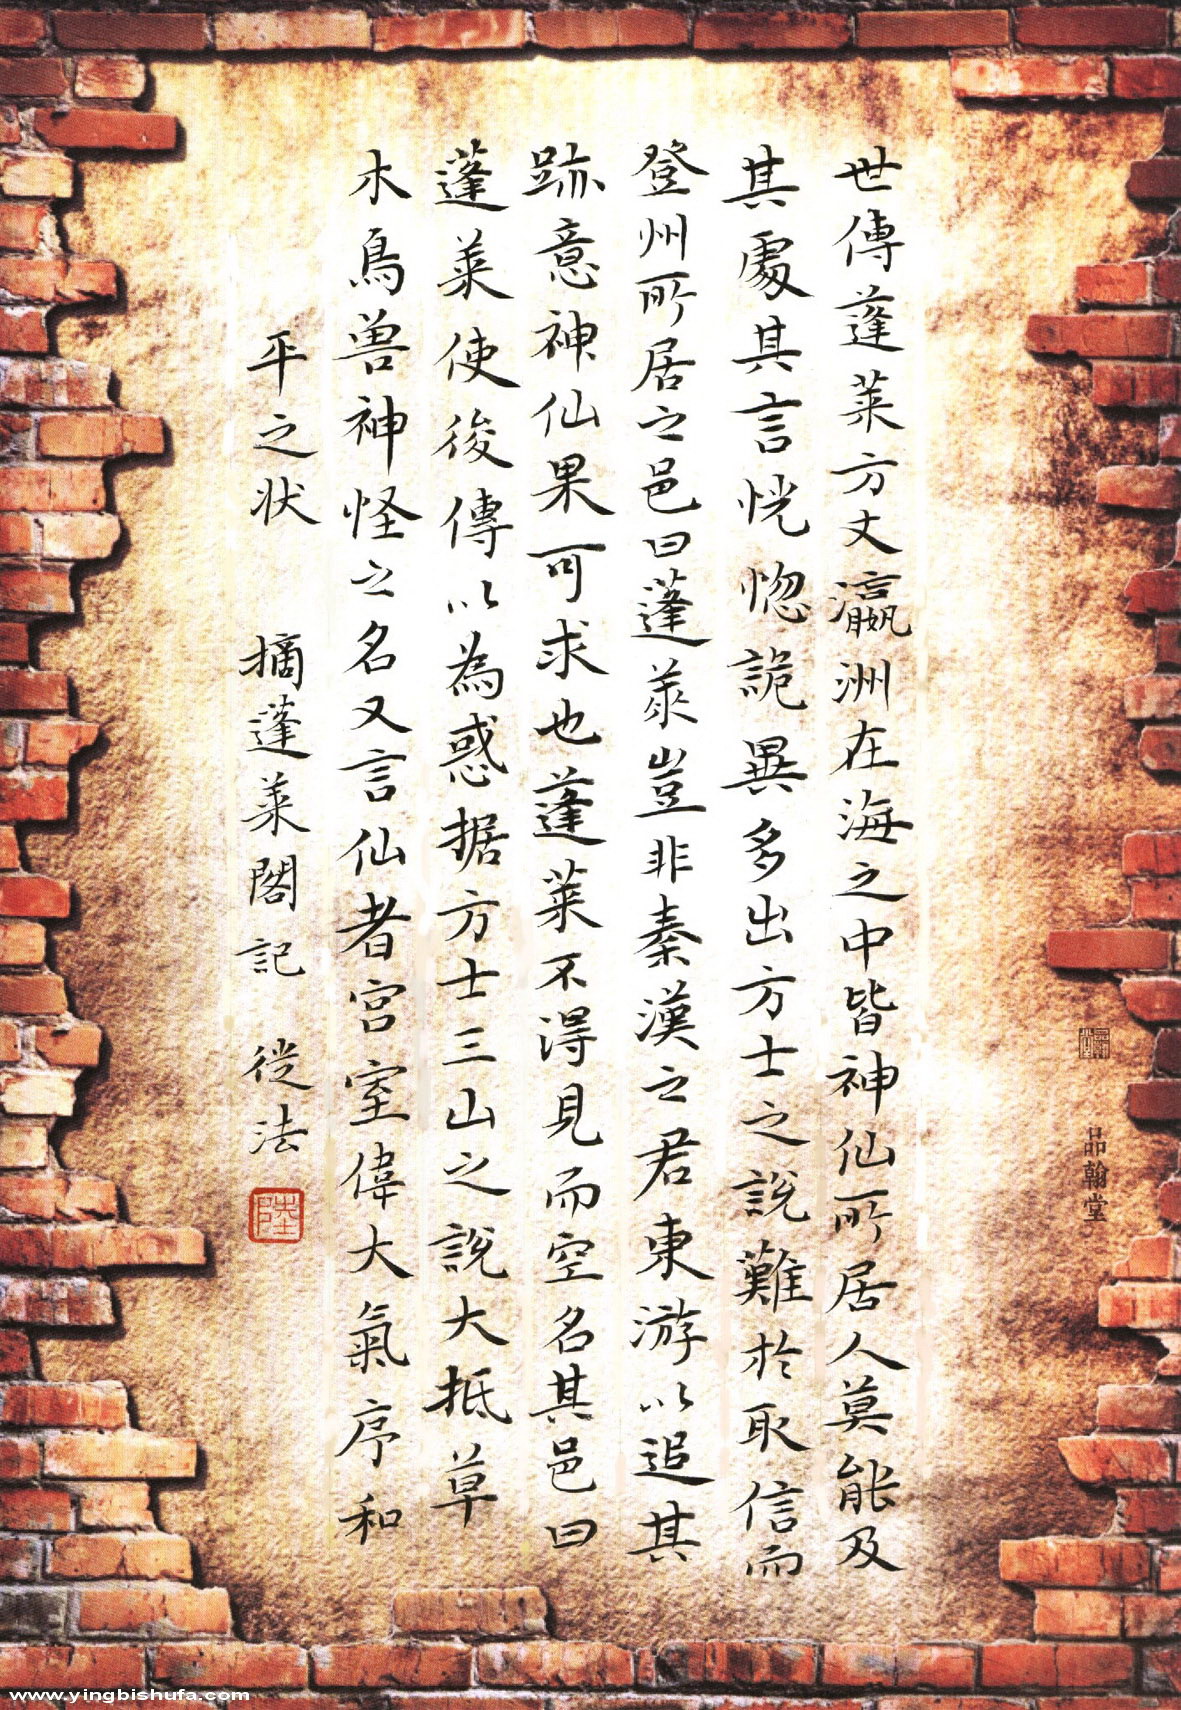 世傳蓬萊方丈瀛洲在海之中皆神仙所居人莫能及
其處其言恍惚詭異多出方士之說難於取信而
登州所居之邑曰蓬萊豈非秦漢之君東游以追其
跡意神仙果可求也蓬萊不得見而空名其邑曰
蓬萊使後傳以為惑据方士三山之說大抵草
木鳥兽神怪之名又言仙者宫室偉大氣序和
平之状 摘蓬萊閣記 從法
陸
品翰堂
www.yingbishufa.com